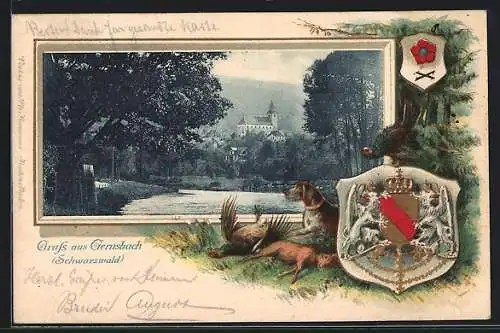 Besten Dank für gesandte Karte
Gruß aus Gernsbach
(Schwarzwald)
Herzl. Grüße von Deinem
Bruder August